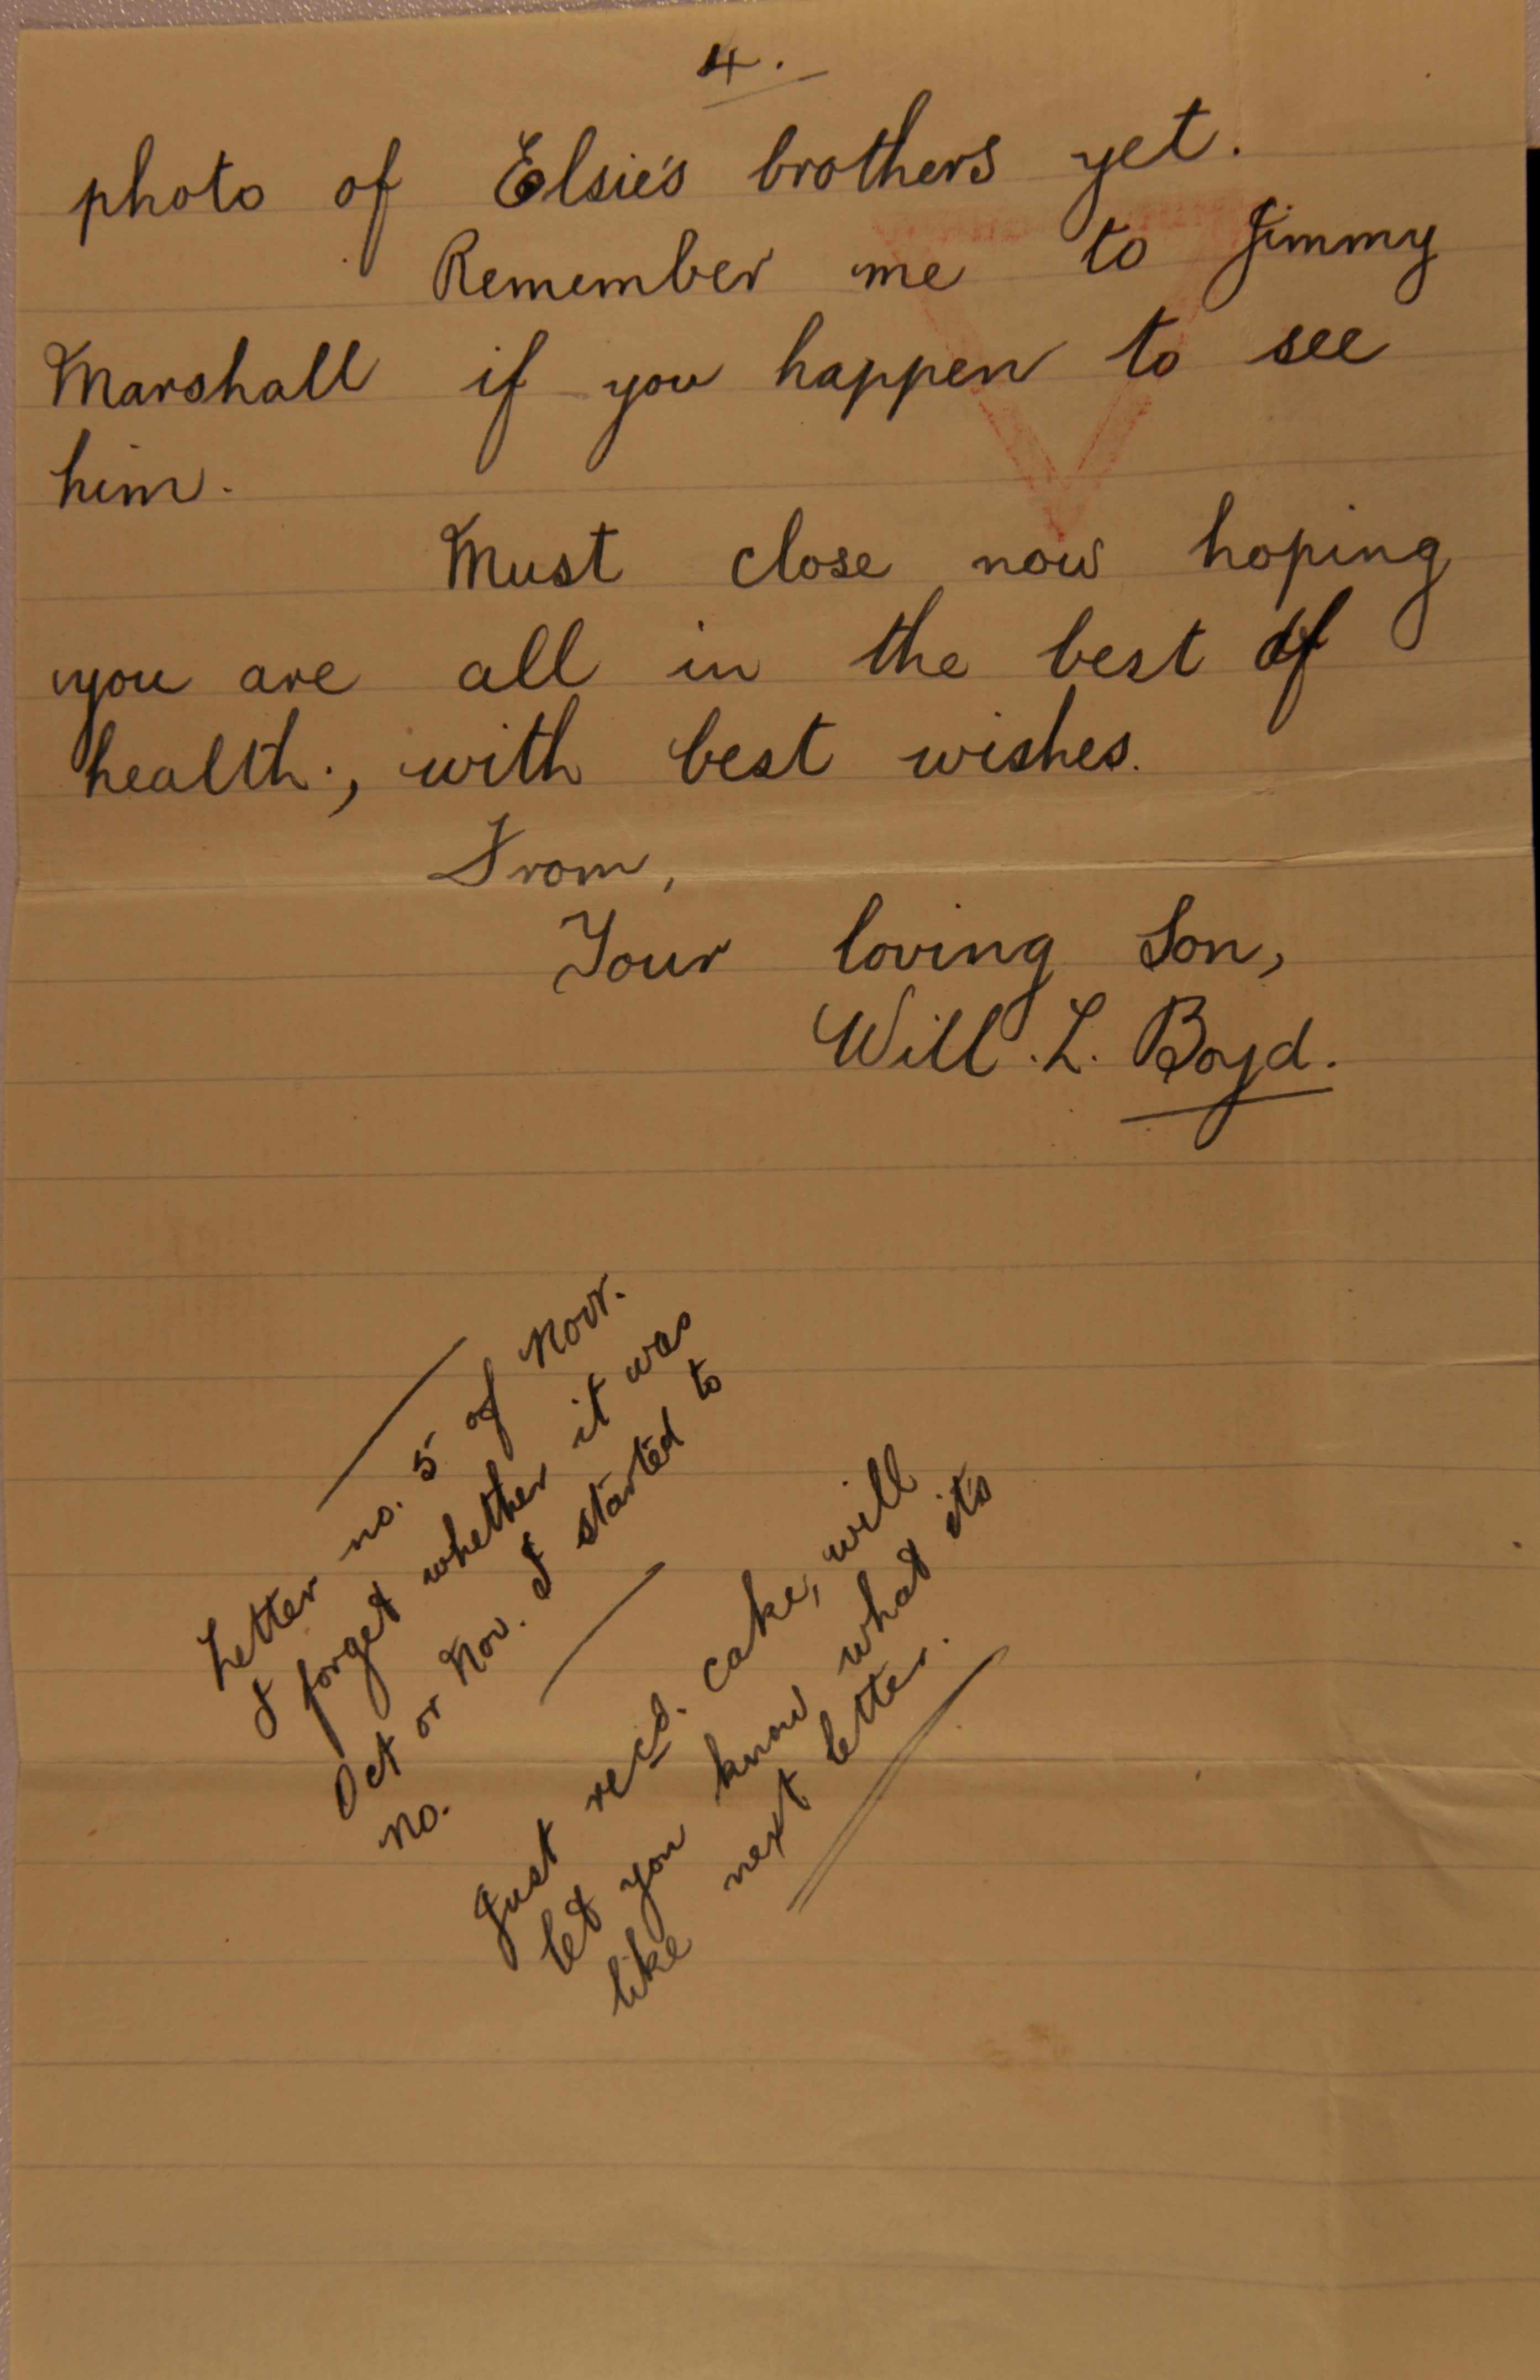 4.
photo of Elsie's brothers yet.
Remember me to Jimmy
Marshall if you happen to see
him.
Must close now hoping
you are all in the best of
health., with best wishes.
From,
Your loving Son,
Will. L. Boyd.
Letter no. 5 of Novr.
I forget whether it was
Oct or Nov. I started to
no.
Just recd. cake, will
let you know what it's
like next letter.